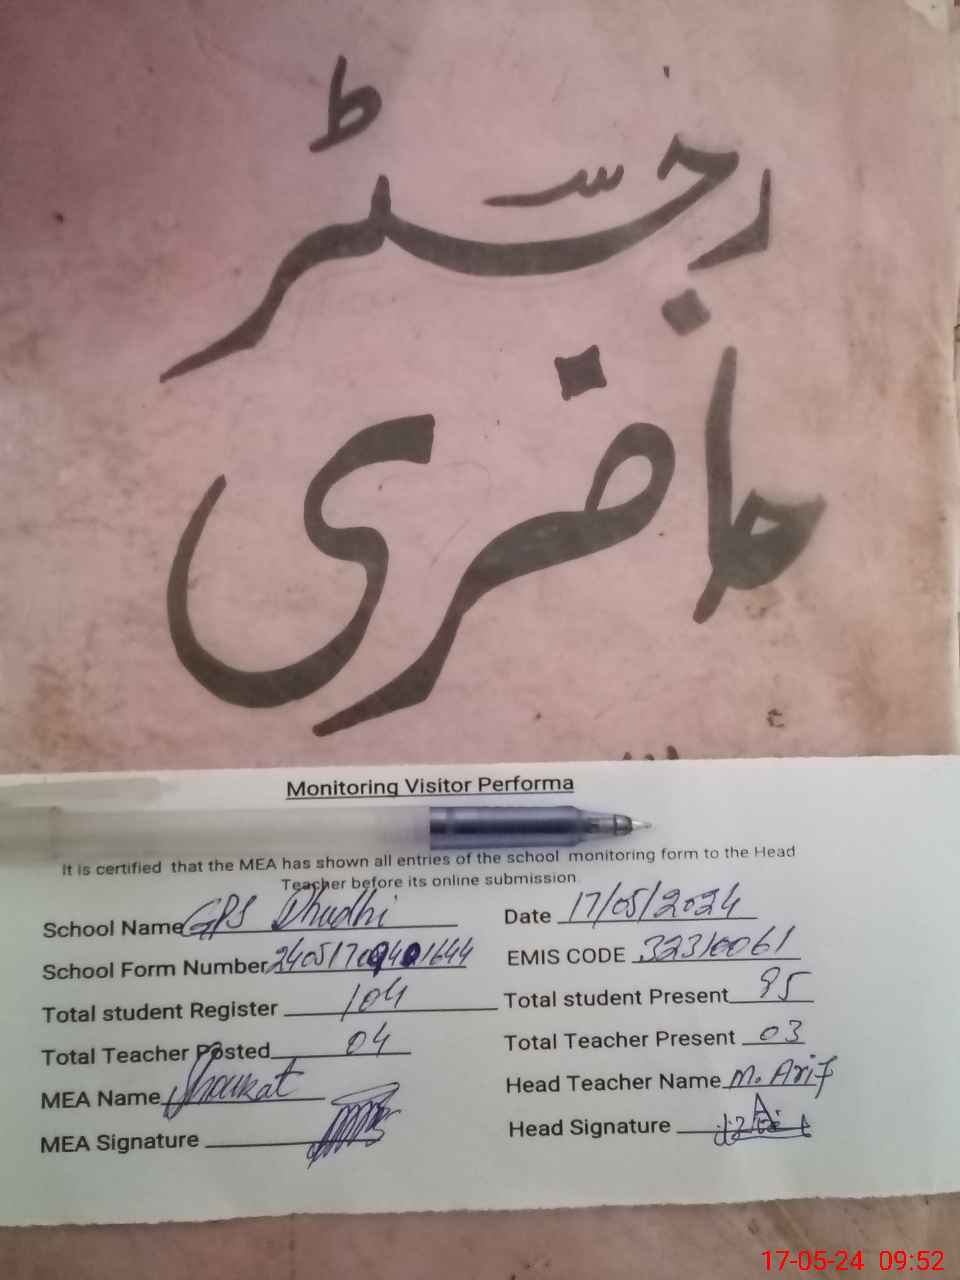 رجسٹر
حاضری
Monitoring Visitor Performa
It is certified that the MEA has shown all entries of the school monitoring form to the Head
Teacher before its online submission
School Name GPS Dhudhi Date 17/05/2024
School Form Number EMIS CODE 32310061
Total student Register 104 Total student Present 95
Total Teacher Posted 04 Total Teacher Present 03
MEA Name Shoukat Head Teacher Name M. Arif
MEA Signature Head Signature
17-05-24 09:52